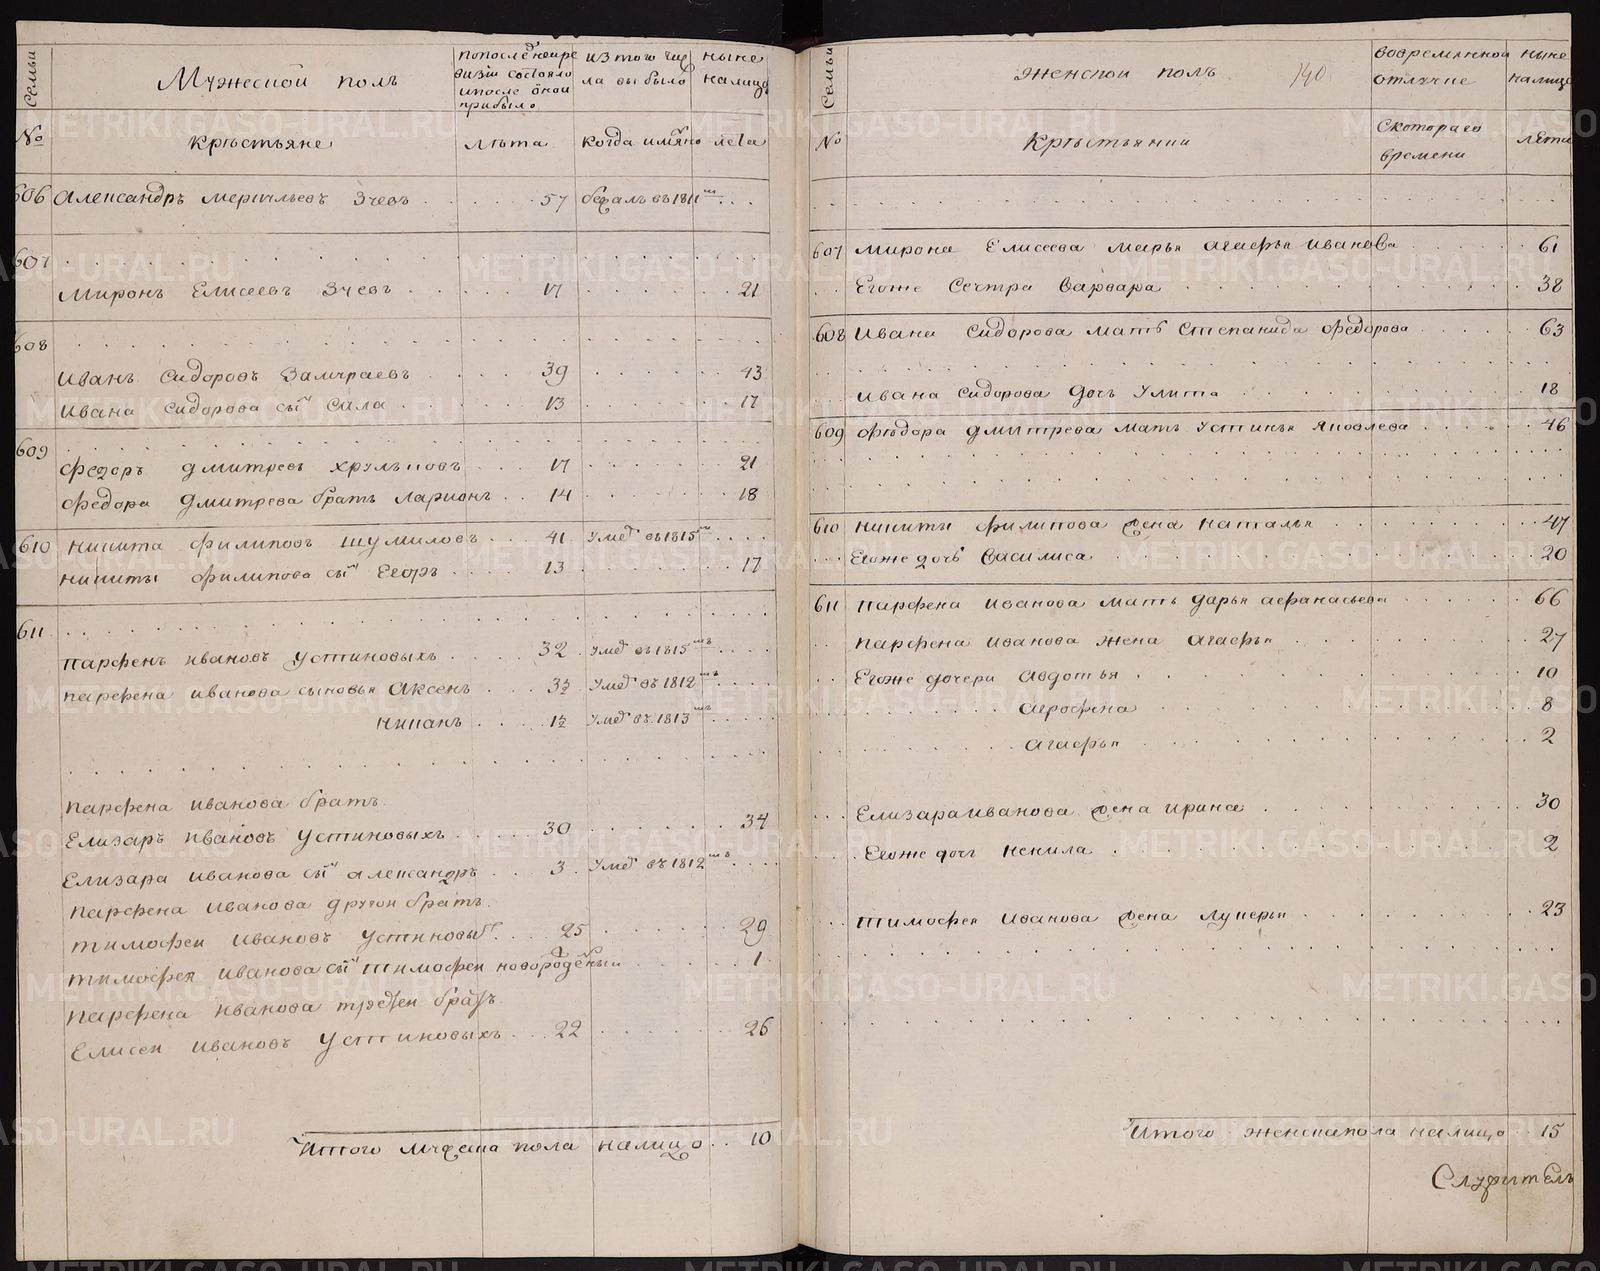 Семьи
Мужеской полъ
попоследнеире
визіи состояло
ипосле оной
прибыло
изтого чис
ла выбыло
ныне
налицо
№
Крѣстьяне
лѣта
когда имяно
лета
606 Александръ Зуевъ 57 бежалъ въ 1811
607
Миронъ Елисеевъ Зуевъ 17 21
608
Иванъ Сидоровъ Замураевъ 39 43
Ивана Сидорова сынъ Сала 13 17
609
Федоръ Дмитревъ Хрульновъ 17 21
Федора Дмитрева братъ Ларионъ 14 18
610 Никита Филиповъ Шумиловъ 41 Умеръ въ 1815мъ
Никиты Филипова сынъ Егоръ 13 17
611
Парфенъ Ивановъ Устиновыхъ 32 Умеръ въ 1815мъ
Парфена Иванова сыновья Аксенъ Умеръ въ 1812мъ
12 Умеръ въ 1813мъ
Парфена Иванова братъ
Елизаръ Ивановъ Устиновыхъ 30 34
Елизара Иванова сынъ Александръ 3 Умеръ въ 1812мъ
Парфена Иванова другои братъ
Тимофеи Ивановъ Устиновыхъ 25 29
Тимофея Иванова сынъ Тимофеи новорожденныи 1
Парфена Иванова третеи братъ
Елисеи Ивановъ Устиновыхъ 22 26
Итого мужеска пола налицо 10
Семьи
Женскои полъ
140
вовремянной
отлучке
ныне
налицо
№
Крѣстьянки
Скотораго
времени
лѣта
607 Мирона Елисеева Марья Агафья Иванова 61
Егоже Сестра Варвара 38
608 Ивана Сидорова мать Степанида Федорова 63
Ивана Сидорова дочь Улита 18
609 Фѣдора Дмитрева мать Устинья Яковлева 46
610 Никиты Филипова жена Наталья 47
Егоже дочь Василиса 20
611 Парфена Иванова мать Дарья Афанасьева 66
Парфена Иванова жена Агафья 27
Егоже дочери Авдотья 10
Афрофена 8
Агафья 2
Елизара Иванова жена Ирина 30
Егоже дочь Ненила 2
Тимофея Иванова жена Лукерья 23
Итого женска пола налицо 15
Служитель